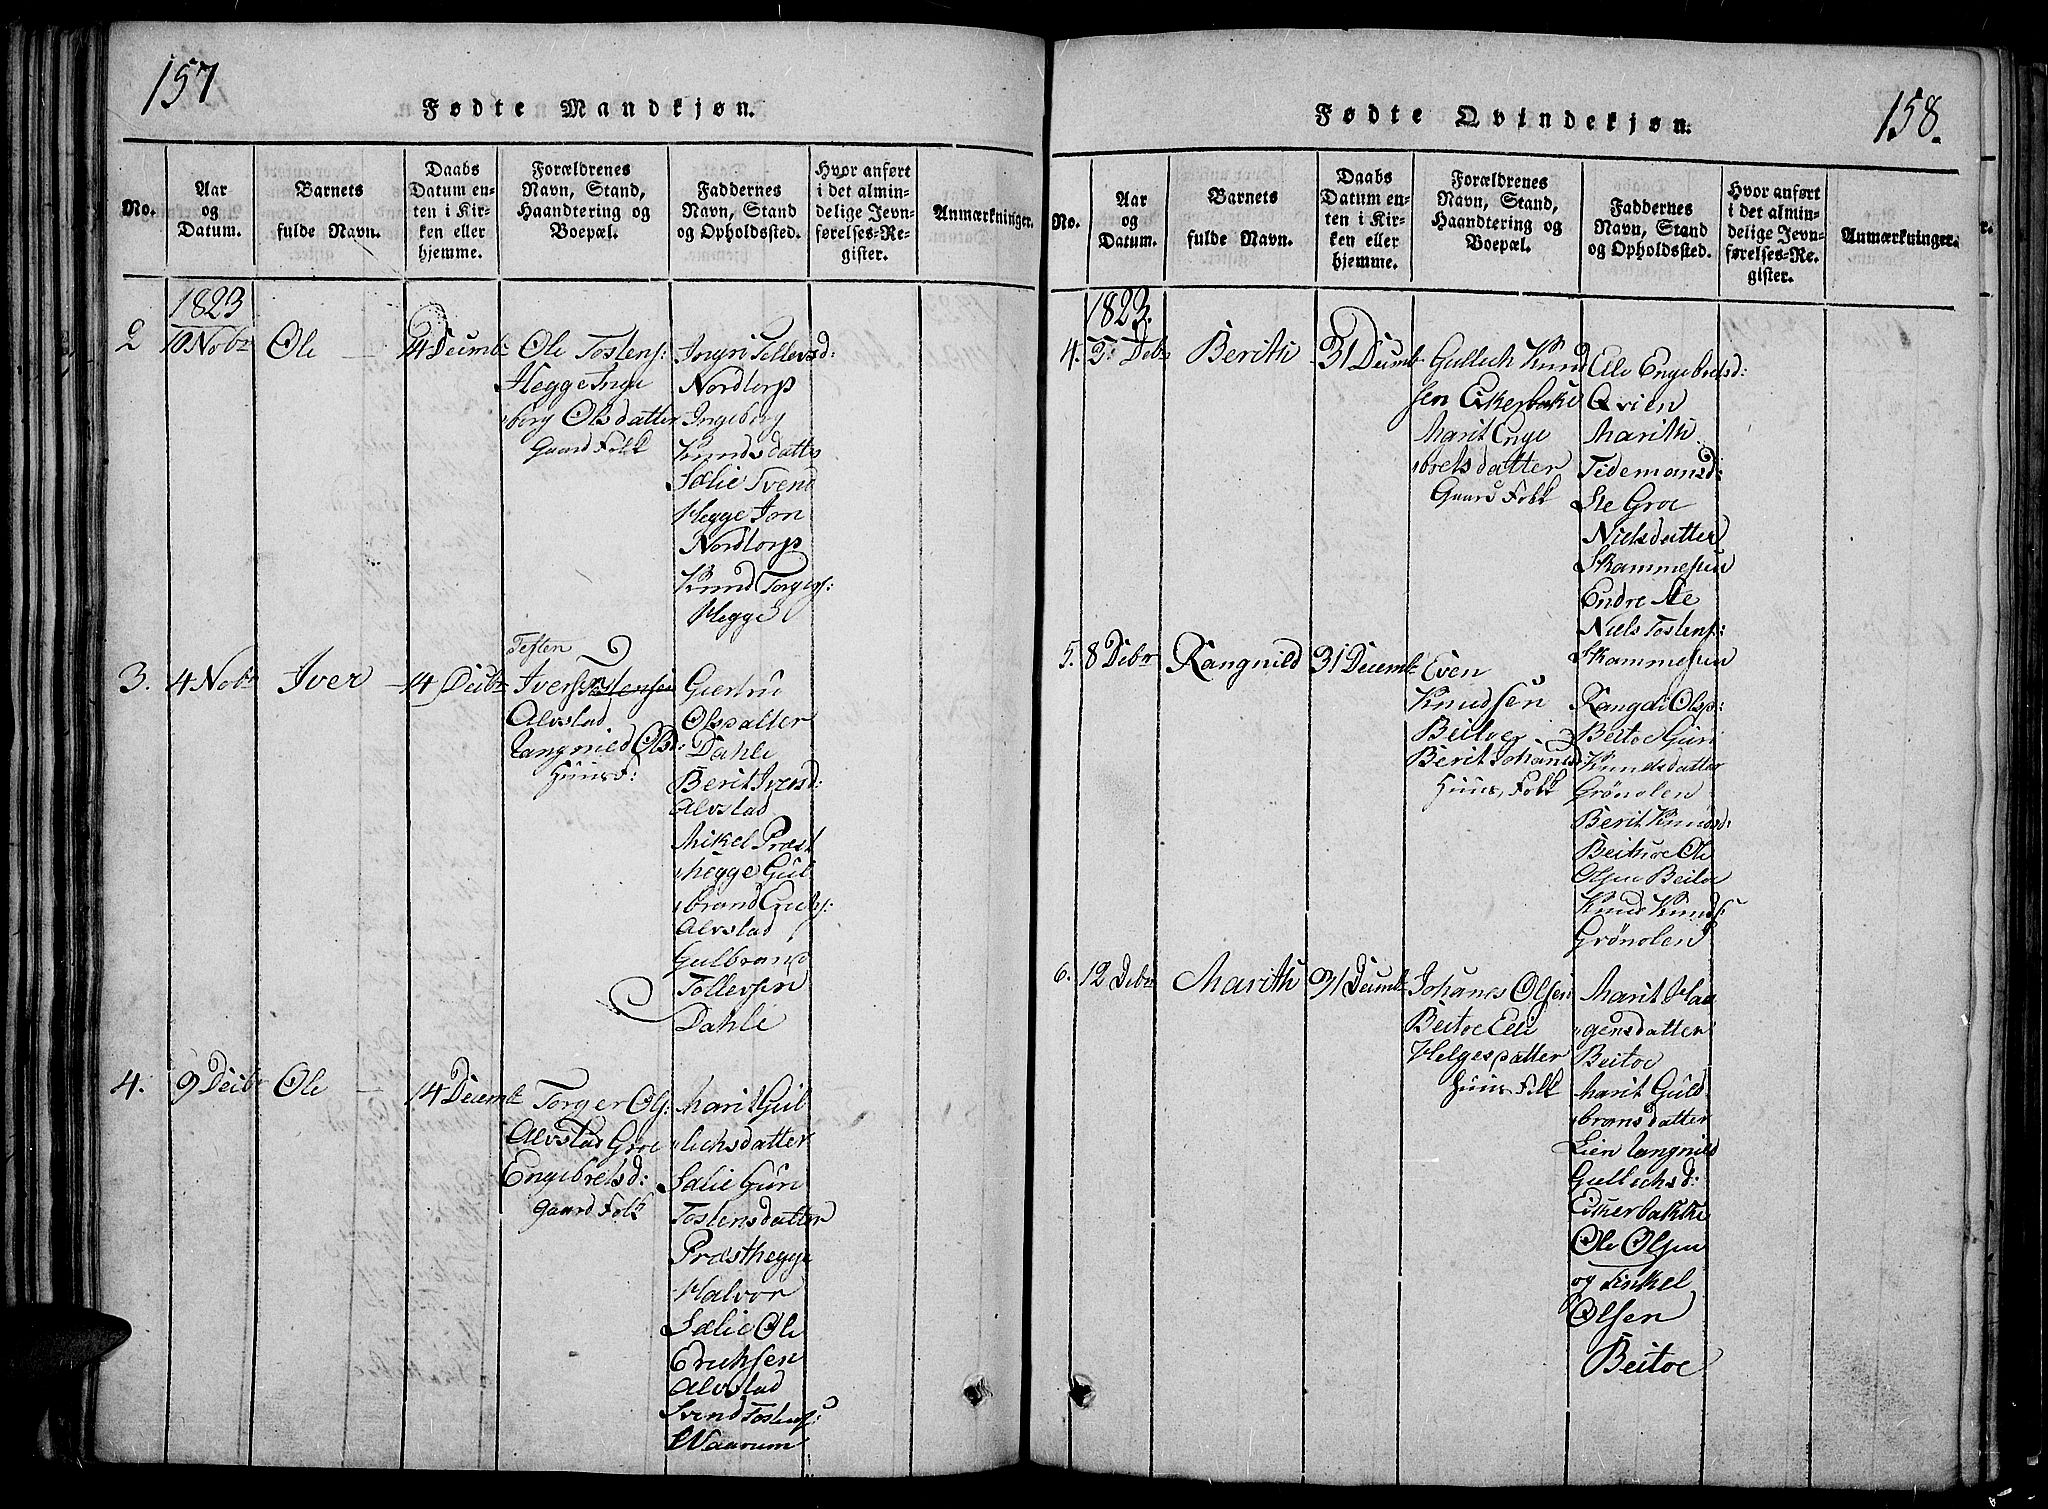 157
Fødte Mandkjøn.
No.
Aar
og
Datum.
Barnets
fulde Navn.
Daabs
Datum en-
ten i Kir-
ken eller
hjemme.
Forældrenes
Navn, Stand,
Haandtering og
Boepæl.
Faddernes
Navn, Stand
og Opholdssted.
Hvor anført
i det almin-
delige Jevn-
førelses-Re-
gister.
Anmærkninger.
1823
2
10 Nobr
Ole
14 Decmbr
Ole Tostens:
Hegge Inge
borg Olsdatter
Gaard Folk
Ingri Tollevsd:
Nordtorp
Ingeborg
Knudsdatter
Sælie Svend
Hegge Jon
Nordtorp
Knud Torgers:
Hegge
3.
4 Nobr
Iver
14 Decbr
Testen
Iversen Tostensen
Alvstad
Rangnild Olsd:
Huus F:
Giertru
Olsdatter
Dahle
Berit Iversd:
Alvstad
Mikel Præst
hegge Gul
brand Erichs:
Alvstad
Gulbrand
Tollevsen
Dahle
4.
9 Decbr
Ole
14 Decembr
Torger Ols:
Alvstad Groe
Engebretsd:
Gaard Folk
Marit Gul
lichsdatter
Sælie Guri
Tostensdatter
Præsthegge
Halvor
Sælie Ole
Erichsen
Alvstad
Svend Tostens:
Waarum
158.
Fødte Qvindekjøn.
No.
Aar
og
Datum.
Barnets
fulde Navn.
Daabs
Datum en-
ten i Kir-
ken eller
hjemme.
Forældrenes
Navn, Stand,
Haandtering og
Boepæl.
Faddernes
Navn, Stand
og Opholdssted.
Hvor anført
i det almin-
delige Jevn-
førelses-Re-
gister.
Anmærkninger.
1823.
4.
3 Debr
Berith
31 Decmbr
Gullich Knud
sen Eikerbake
Marit Enge
bretsdatter
Gaard Folk
Eli Engebretsd:
Qvien
Marith
Tidemansd:
Ste Groe
Nielsdatter
Skammesuin
Endre Ste
Niels Tostens:
Skammesuin
5.
8 Debr
Rangnild
31 Decembr
Even
Knudsen
Beitoe
Berit Johansd
Huus Folk
Rangdi Olsd:
Beitoe Guri
Knudsdatter
Grönolen
Berit Knudsd:
Beitoe Ole
Olsen Beitoe
Knud Knuds
Grönolen
6.
12 Debr
Marith
31 Decmbr
Johanes Olsen
Beitoe Eli
Helgesdatter
Huus Folk
Marit Haa
gensdatter
Beitoe
Marit Guld
bransdatter
Lien Rangnild
Gullichsd:
Eikerbakke
Ole Olsen
og Tinkel
Olsen
Beitoe